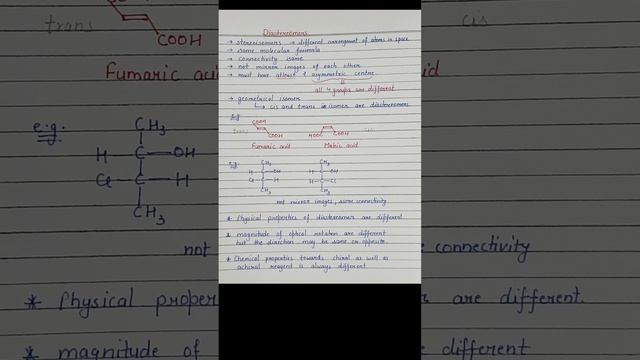 Diastereomers
→ stereoisomers → different arrangement of atoms in space
→ same molecular formula
→ connectivity same
→ not mirror images of each other
→ must have atleast 1 asymmetric centre
all 4 groups are different
→ geometrical isomer
↳ cis and trans isomer are diastereomers
e.g
COOH
trans
COOH
HOOC
COOH
cis
Fumaric acid
Maleic acid
e.g.
CH3
CH3
H C OH
H C OH
Cl C H
H C Cl
CH3
CH3
not mirror images, same connectivity
* Physical properties of diastereomers are different
* magnitude of optical rotation are different
but the direction may be same or opposite.
* Chemical properties towards chiral as well as
achiral reagent is always different
trans
COOH
cis
Fumaric acid
id
e.g.
CH3
H C OH
Cl C H
CH3
not
connectivity
* Physical proper
are different.
* magnitude of
different